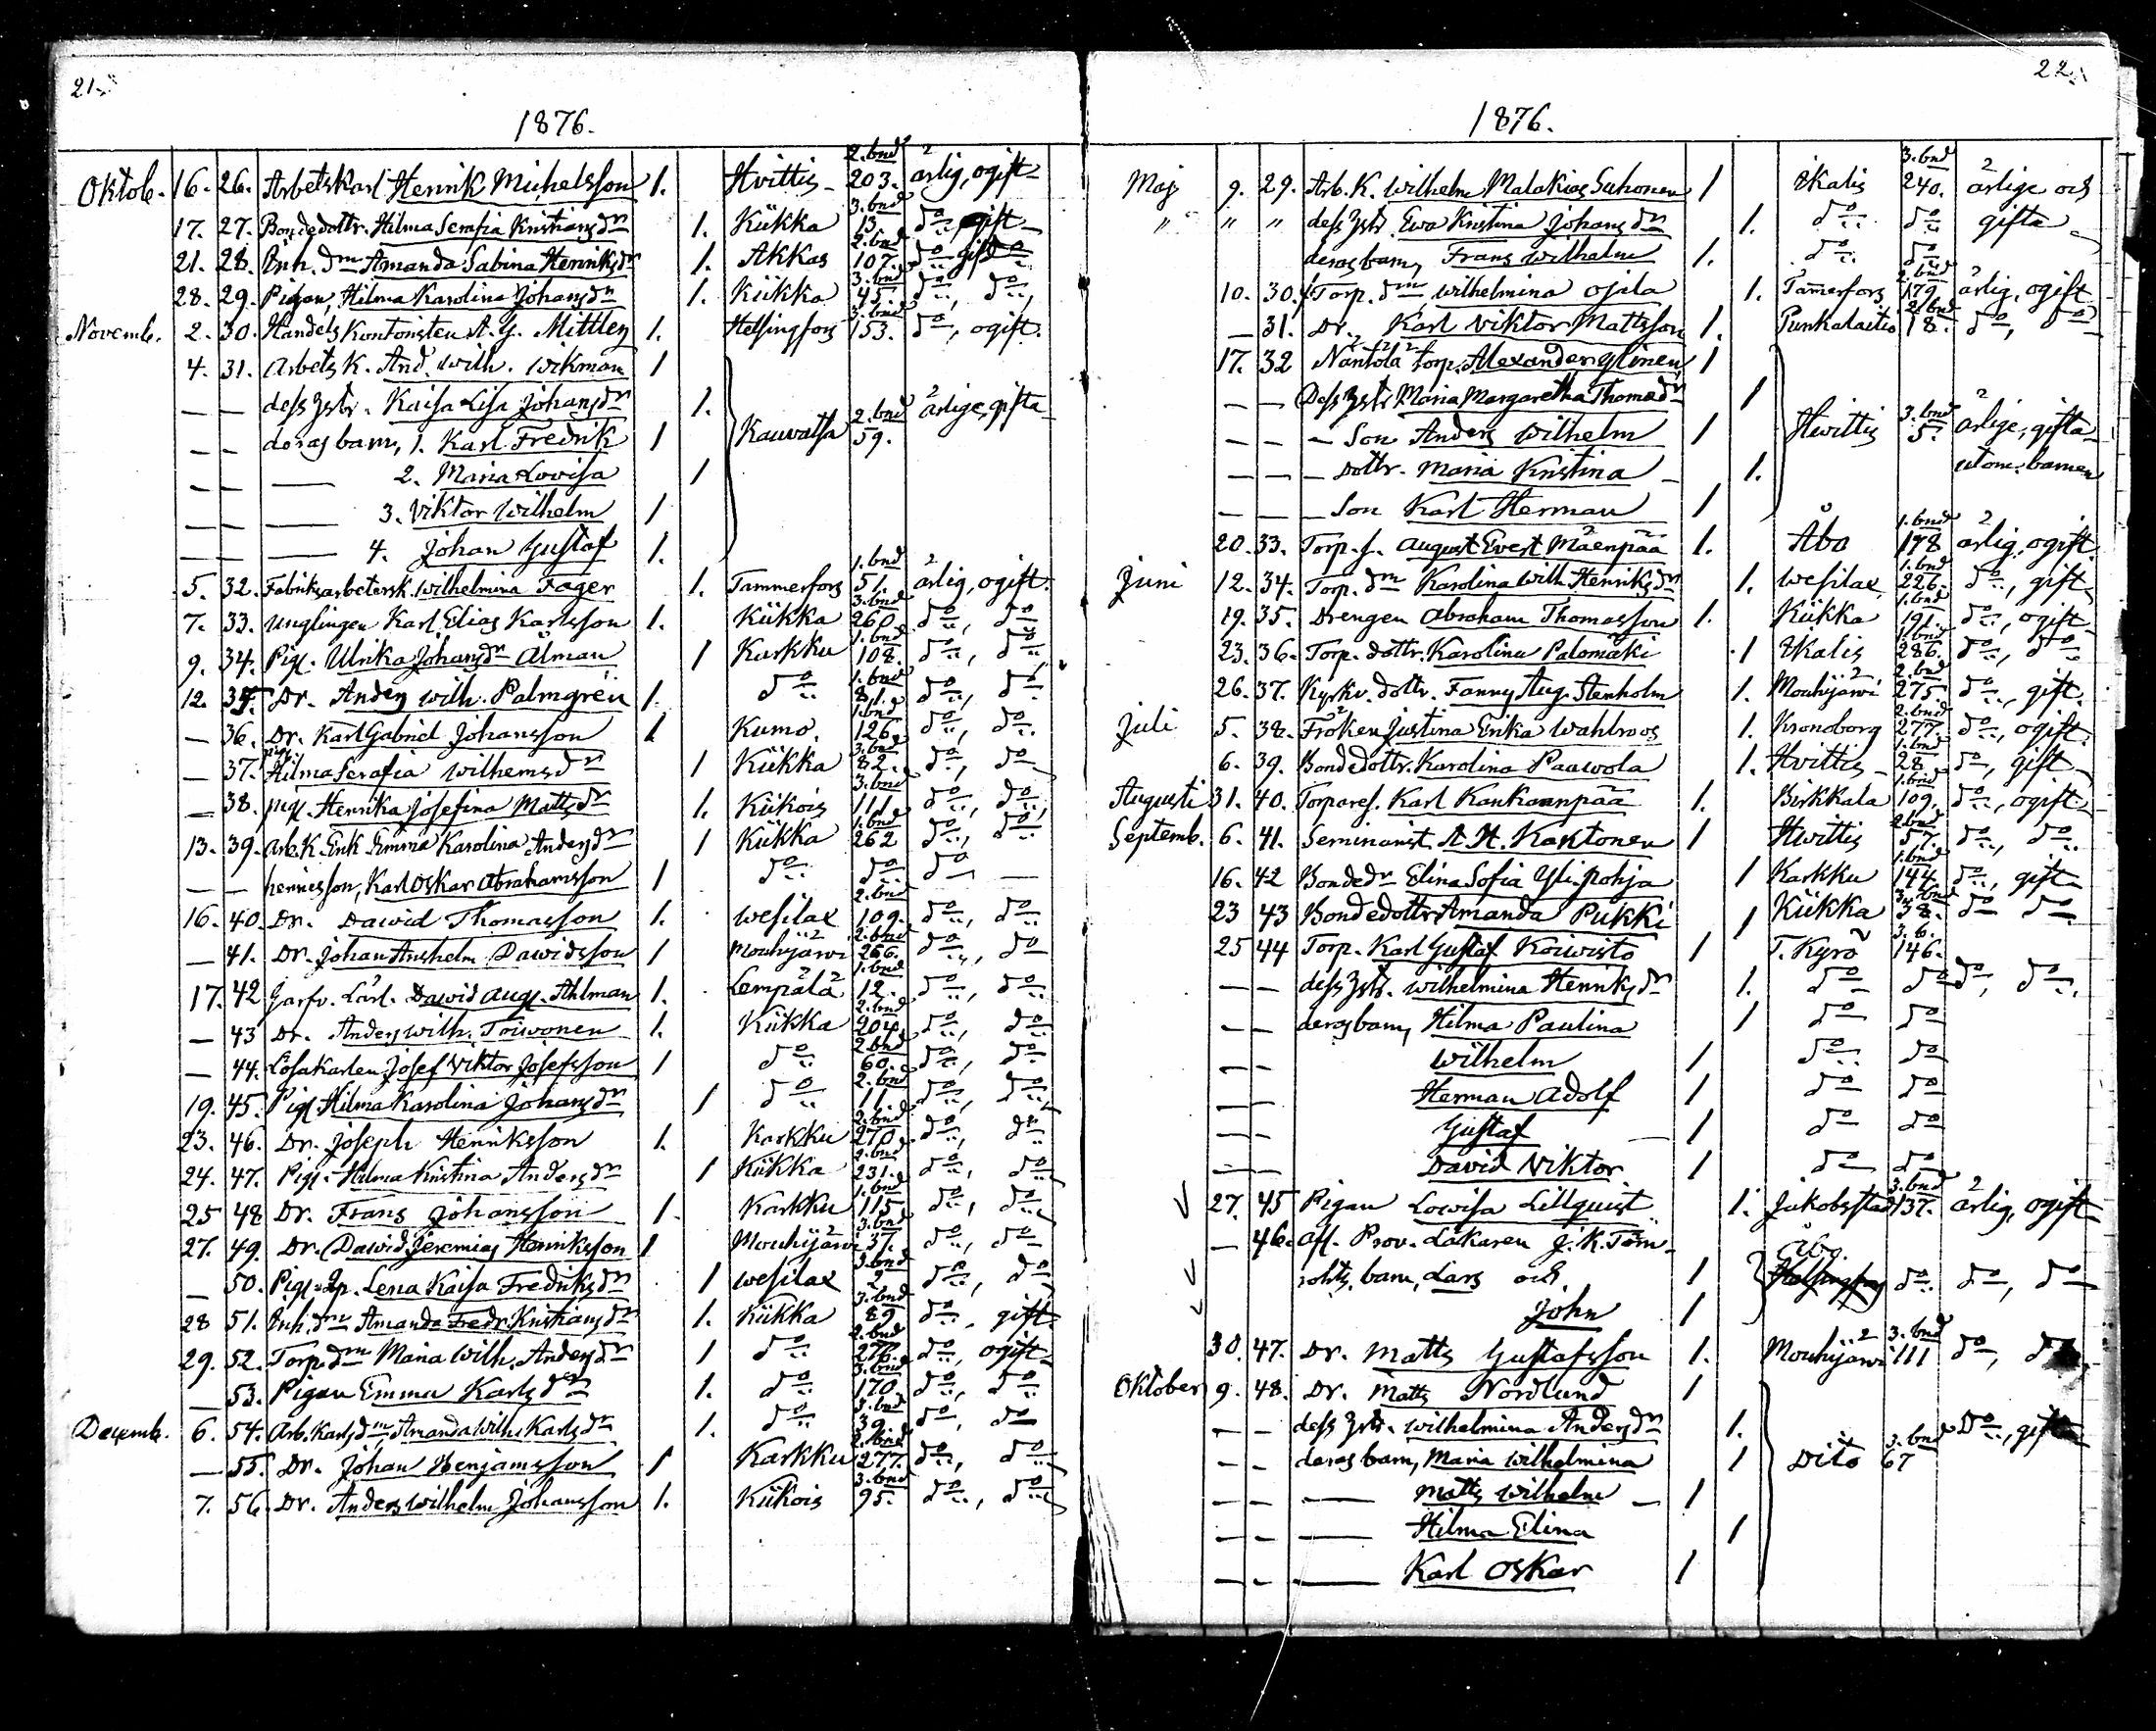 21.
1876.
Oktob. 16. 26. Arbetskarl Henrik Michelsson 1. Hvittis 2. bnd 203. ärlig, ogift
17. 27. Bondedottr. Hilma Serafia Kristiansdr 1. Kiikka 3. bnd 13. do gift
21. 28. Inh. dm Amanda Sabina Henriksdr 1. Akkas 2. bnd 107. do gift
28. 29. Pigan, Hilma Karolina Johansdr 1. Kiikka 3. bnd 45. do, do,
Novemb. 2. 30. Handels Kontoristen A. G. Mittler 1. Helsingfors 3. bnd 153. do, ogift.
4. 31. Arbets K. And. Wilh. Wikman 1
— — dess hstr. Kaisa Lisa Johansdr 1. Kauvatsa 2. bnd 59. ärlige, gifta
— — deras barn, 1. Karl Fredrik 1
— — — 2. Maria Lovisa 1
— — — 3. Viktor Wilhelm 1
— — — 4. Johan Gustaf 1.
5. 32. Fabriksarbetersk. Wilhelmina Fager 1. Tammerfors 1. bnd 51. ärlig, ogift.
7. 33. Ynglingen Karl Elias Karlsson 1. Kiikka 3. bnd 260 do, do
9. 34. Pig. Ulrika Johansdr Älman 1 Karkku 1. bnd 108. do, do
12. 35. Dr. Anders Wilh. Palmgren 1. do 1. bnd 81. do, do
— 36. Dr. Karl Gabriel Johansson 1 Kumo. 1. bnd 126 do, do
— 37. pig. Hilma Serafia Wilhemsdr 1 Kiikka 3. bnd 82. do, do
— 38. pig. Henrika Josefina Mattsdr 1. Kiikois 3. bnd 111. do, do,
13. 39. Arb. K. Enk. Emma Karolina Andersdr 1 Kiikka 1. bnd 262 do, do,
— — hennes son, Karl Oskar Abrahamsson 1 do do do —
16. 40. Dr. Dawid Thomasson 1. Wesilax 2. bnd 109. do, do
— 41. Dr. Johan Anshelm Dawidsson 1 Mouhijärvi 2. bnd 266. do, do
17. 42 Garfv. Lärl. Dawid Aug. Ahlman 1. Lempälä 1. bnd 12. do, do
— 43 Dr. Anders Wilh. Toivonen 1. Kiikka 2. bnd 204. do, do
— 44. Lösakarlen Josef Viktor Josefsson 1 do 2. bnd 60. do, do
19. 45. Pig. Hilma Karolina Johansdr 1 do 2. bnd 11 do, do
23. 46. Dr. Joseph Henriksson 1. Karkku 2. bnd 270 do, do
24. 47. Pig. Hilma Kristina Andersdr 1 Kiikka 2. bnd 231. do, do
25 48 Dr. Frans Johansson 1. Karkku 1. bnd 115 do, do
27. 49. Dr. Dawid Jeremias Henriksson 1 Mouhijärvi 3. bnd 37. do, do
— 50. Pig. Lena Kaisa Fredriksdr 1 Wesilax 3. bnd 2 do, do
28 51. Inh. dm Amanda Fredr. Kristiansdr 1. Kiikka 3. bnd 89 do, gift.
29. 52. Torp. dm Maria Wilh. Andersdr 1 do 2. bnd 276. do, ogift
— 53. Pigan Emma Karlsdr 1. do 3. bnd 170. do, do
Decemb. 6. 54. Arb. Karls dm, Amanda Wilh. Karlsdr 1. do 3. bnd 39. do, do
— 55. Dr. Johan Benjamsson 1 Karkku 2. bnd 277. do, do
7. 56. Dr. Anders Wilhelm Johansson 1. Kiikois 3. bnd 95. do, do
22.
1876.
Maj 9. 29. Arb. K. Wilhelm Malakias Suhonen 1 Ikalis 3. bnd 240. ärlige och
" " " dess hstr. Eva Kristina Johansdr 1. do do gifta
deras barn, Frans Wilhelm 1. do do
10. 30. Torp. dm Wilhelmina Ojala 1. Tammerfors 2. bnd 179. ärlig, ogift
— 31. Dr. Karl Viktor Mattsson 1. Punkalaitio 2. bnd 18. do, do
17. 32 Näntölä torp. Alexander Glinen 1
— — Dess hstr Maria Margaretha Thomasdr 1
— — — Son Anders Wilhelm 1 Hvittis 3. bnd 5. ärlige, gifta
— — — Dottr. Maria Kristina 1. utom. barnen
— — — Son Karl Herman 1
20. 33. Torp. s. August Evert Mäenpää 1. Åbo 1. bnd 178 ärlig, ogift
Juni 12. 34. Torp. dm Karolina Wilh. Henriksdr 1. Wesilax 1. bnd 226. do, gift
19. 35. Drengen Abraham Thomasson 1. Kiikka 1. bnd 191. do, ogift
23. 36. Torp. dottr. Karolina Palomäki 1 Ikalis 1. bnd 286. do, do
26. 37. Kyrkv. dottr. Fanny Aug. Stenholm 1. Mouhijärvi 2. bnd 275. do, gift.
Juli 5. 38. Fröken Justina Erika Wahlroos 1. Kronoborg 2. bnd 277. do, ogift.
6. 39. Bondedottr. Karolina Paawola 1. Hvittis 1. bnd 28 do, gift
Augusti 31. 40. Torpares. Karl Kankaanpää 1. Birkkala 1. bnd 109. do, ogift
Septemb. 6. 41. Seminarist A. H. Kaktonen 1 Hvittis 2. bnd 57. do, do
16. 42 Bondedr Elina Sofia Yli-pohja 1 Karkku 1. bnd 144. do, gift
23 43 Bondedottr Amanda Pukki 1 Kiikka 3. bnd 38. do do
25 44 Torp. Karl Gustaf Koivisto 1 T. Kyrö 3. b. 146.
— — dess hstr. Wilhelmina Henriksdr 1. do do do, do.
— — deras barn, Hilma Paulina 1 do do
— — Wilhelm 1 do do
— — Herman Adolf 1 do do
— — Gustaf 1 do do
— — David Viktor 1 do do
27. 45 Pigan Lovisa Lillquist 1. Jakobsstad 3. bnd 137. ärlig, ogift
— 46. Afl. Prov. Läkaren J. K. Törn-
roths barn, Lars och 1 Åbo. Helsingfors do do, do
John 1
30. 47. Dr. Matts Gustafsson 1. Mouhijärvi 3. bnd 111 do, do
Oktober 9. 48. Dr. Matts Nordlund 1
— — dess hstr. Wilhelmina Andersdr 1.
— — deras barn, Maria Wilhelmina 1 Dito 3. bnd 67 do, gifta
— — — Matts Wilhelm 1
— — — Hilma Elina 1
— — — Karl Oskar 1